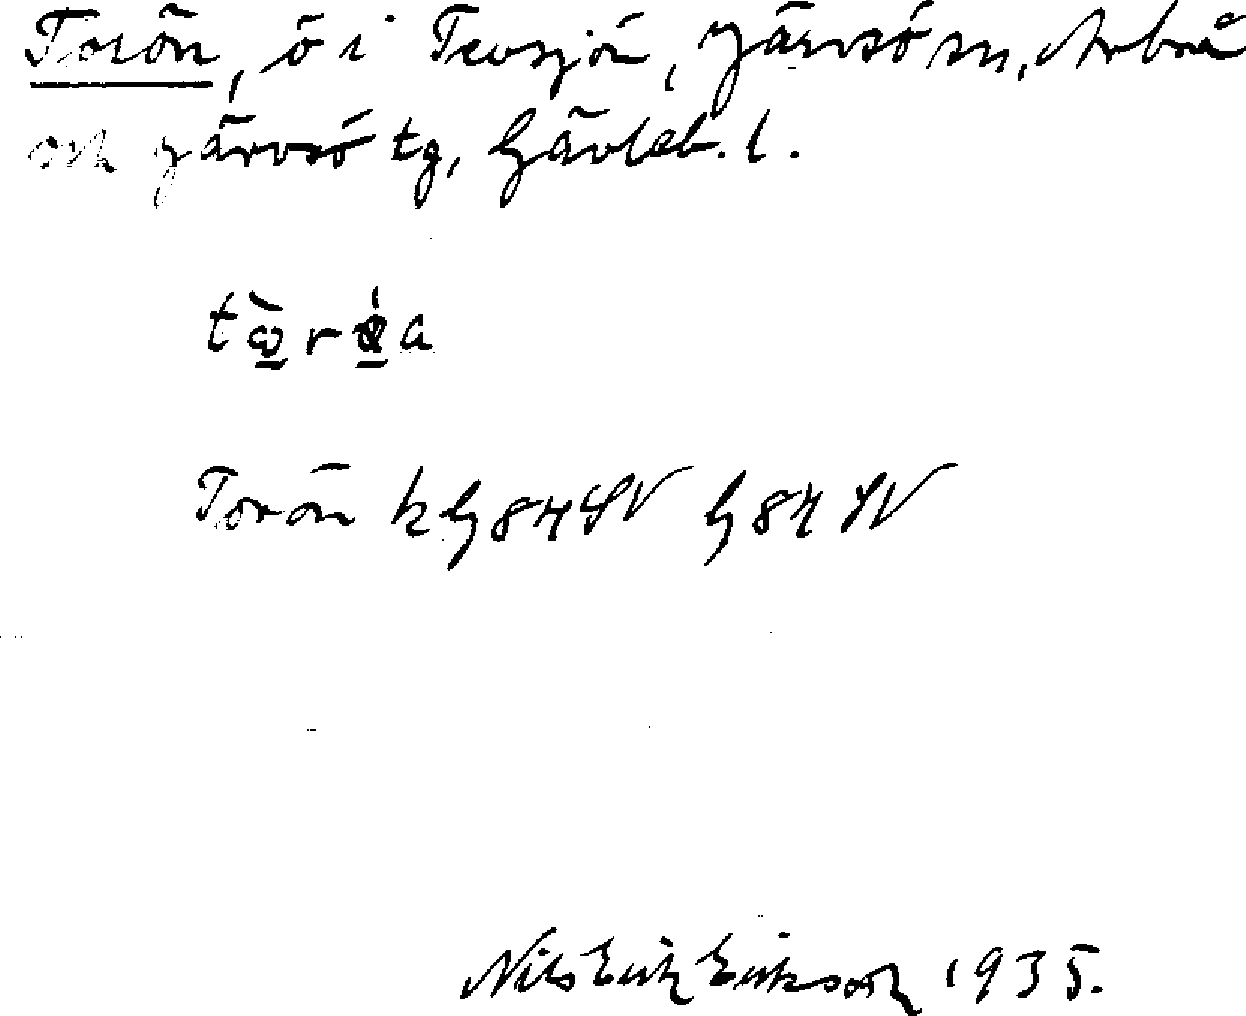 Torön, ö i Tevsjön, Järvsö sn, Arbrå
och Järvsö tg, Gävleb. l.
Torön k G 84 SV G 84 SV
Nils Erik Eriksson 1935.